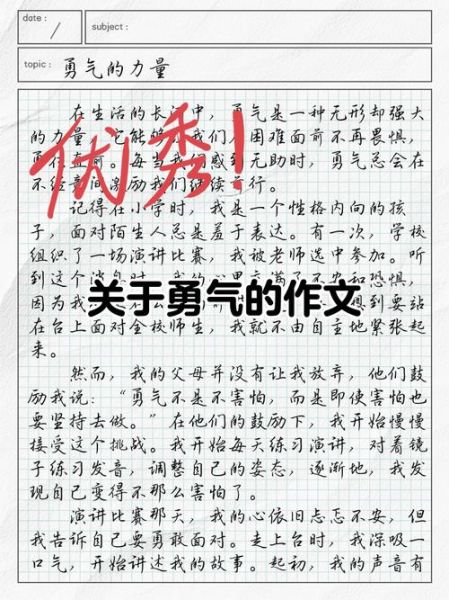 date :
subject :
topic : 勇气的力量
优秀!
在生活的长河中，勇气是一种无形却强大
的力量，它能够让我们在困难面前不再畏惧，
勇往直前。每当我们感到无助时，勇气总会在
不经意间激励我们继续前行。
记得在小学时，我是一个性格内向的孩
子，面对陌生人总是羞于表达。有一次，学校
组织了一场演讲比赛，我被老师选中参加。听
到这个消息时，我的心里充满了不安和恐惧，
因为我
想到要站
关于勇气的作文
在台上面对全校师生，我就不由自主地紧张起
来。
然而，我的父母并没有让我放弃，他们鼓
励我说：“勇气不是不害怕，而是即使害怕也
要坚持去做。”在他们的鼓励下，我开始慢慢
接受这个挑战。我开始每天练习演讲，对着镜
子练习发音，调整自己的姿态，逐渐地，我发
现自己变得不那么害怕了。
演讲比赛那天，我的心依旧忐忑不安，但
我告诉自己要勇敢面对。走上台时，我深吸一
口气，开始讲述我的故事。起初，我的声音有